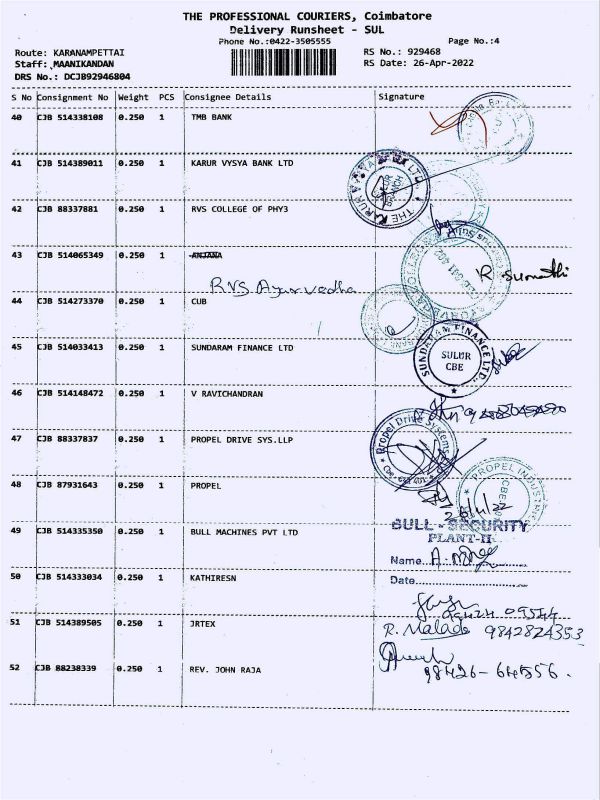 THE PROFESSIONAL COURIERS, Coimbatore
Delivery Runsheet - SUL
Phone No.:0422-3505555
Page No.:4
Route: KARANAMPETTAI
RS No.: 929468
Staff: MAANIKANDAN
RS Date: 26-Apr-2022
DRS No.: DCJB92946804
S No Consignment No Weight PCS Consignee Details Signature
40 CJB 514338108 0.250 1 TMB BANK
41 CJB 514389011 0.250 1 KARUR VYSYA BANK LTD
THE KARUR VYSYA BANK LTD
42 CJB 88337881 0.250 1 RVS COLLEGE OF PHY3
43 CJB 514065349 0.250 1 ANJANA
R Sumathi
RVS Ayurvedha
44 CJB 514273370 0.250 1 CUB
45 CJB 514033413 0.250 1 SUNDARAM FINANCE LTD
SUNDARAM FINANCE LTD.
SULUR
CBE
46 CJB 514148472 0.250 1 V RAVICHANDRAN
47 CJB 88337837 0.250 1 PROPEL DRIVE SYS.LLP
Propel Drive Systems
48 CJB 87931643 0.250 1 PROPEL
PROPEL INDUSTRIES
26/4/22
49 CJB 514335350 0.250 1 BULL MACHINES PVT LTD
BULL - SECURITY
PLANT-II
Name
Date
50 CJB 514333034 0.250 1 KATHIRESN
51 CJB 514389505 0.250 1 JRTEX
R. Malada 9842824353
52 CJB 88238339 0.250 1 REV. JOHN RAJA
98426-64556.